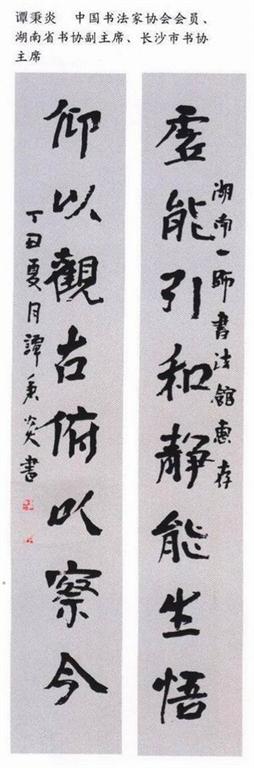 谭秉炎 中国书法家协会会员、
湖南省书协副主席、长沙市书协
主席
虚能引和静能生悟
湖南一师书法馆惠存
仰以觀古俯以察今
丁丑夏月譚秉炎书